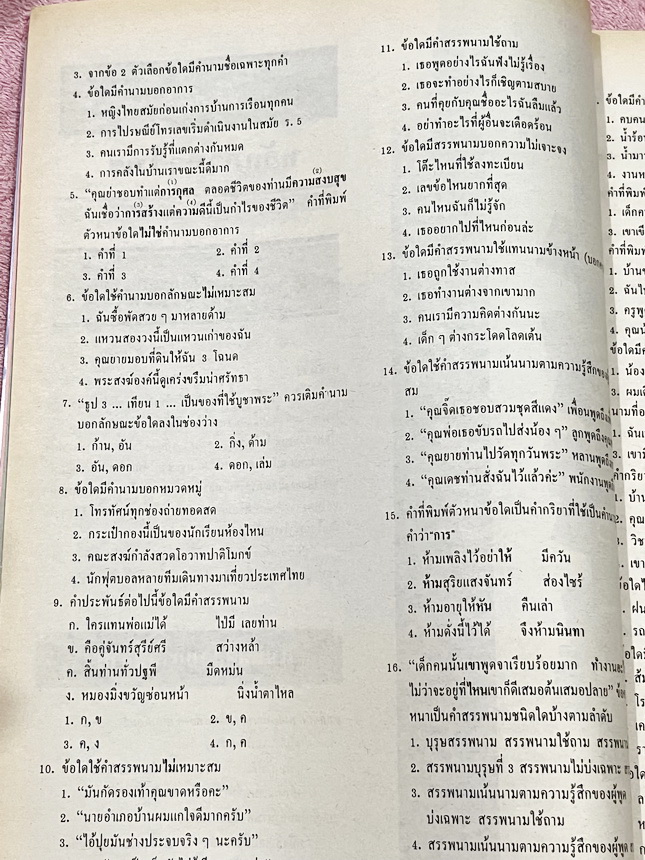 3. จากข้อ 2 ตัวเลือกข้อใดมีคำนามชื่อเฉพาะทุกคำ
4. ข้อใดมีคำนามบอกอาการ
1. หญิงไทยสมัยก่อนเก่งการบ้านการเรือนทุกคน
2. การไปรษณีย์โทรเลขเริ่มดำเนินงานในสมัย ร. 5
3. คนเรามีการรับรู้ที่แตกต่างกันหมด
4. การคลังในบ้านเราขณะนี้ดีมาก
5. “คุณย่าชอบทำแต่การกุศล (1) ตลอดชีวิตของท่านมีความสงบสุข (2)
ฉันเชื่อว่าการสร้างแต่ความดีนี้เป็นกำไรของชีวิต” (3) (4) คำที่พิมพ์
ตัวหนาข้อใดไม่ใช่คำนามบอกอาการ
1. คำที่ 1 2. คำที่ 2
3. คำที่ 3 4. คำที่ 4
6. ข้อใดใช้คำนามบอกลักษณะไม่เหมาะสม
1. ฉันซื้อพัดสวย ๆ มาหลายด้าม
2. แหวนสองวงนี้เป็นแหวนเก่าของฉัน
3. คุณยายมอบที่ดินให้ฉัน 3 โฉนด
4. พระสงฆ์องค์นี้ดูเคร่งขรึมน่าศรัทธา
7. “ธูป 3 ... เทียน 1 ... เป็นของที่ใช้บูชาพระ” ควรเติมคำนาม
บอกลักษณะข้อใดลงในช่องว่าง
1. ก้าน, อัน 2. กิ่ง, ด้าม
3. อัน, ดอก 4. ดอก, เล่ม
8. ข้อใดมีคำนามบอกหมวดหมู่
1. โทรทัศน์ทุกช่องถ่ายทอดสด
2. กระเป๋ากองนี้เป็นของนักเรียนห้องไหน
3. คณะสงฆ์กำลังสวดโอวาทปาติโมกข์
4. นักฟุตบอลหลายทีมเดินทางมาเที่ยวประเทศไทย
9. คำประพันธ์ต่อไปนี้ข้อใดมีคำสรรพนาม
ก. ใครแทนพ่อแม่ได้ ไป่มี เลยท่าน
ข. คือคู่จันทร์สุรีย์ศรี สว่างหล้า
ค. สิ้นท่านทั่วปฐพี มืดหม่น
ง. หมองมิ่งขวัญซ่อนหน้า นิ่งน้ำตาไหล
1. ก, ข 2. ข, ค
3. ค, ง 4. ก, ค
10. ข้อใดใช้คำสรรพนามไม่เหมาะสม
1. “มันกัดรองเท้าคุณขาดหรือคะ”
2. “นายอำเภอบ้านผมแกใจดีมากครับ”
3. “ไอ้ปุยมันช่างประจบจริง ๆ นะครับ”
11. ข้อใดมีคำสรรพนามใช้ถาม
1. เธอพูดอย่างไรฉันฟังไม่รู้เรื่อง
2. เธอจะทำอย่างไรก็เชิญตามสบาย
3. คนที่คุยกับคุณชื่ออะไรฉันลืมแล้ว
4. อย่าทำอะไรที่ผู้อื่นจะเดือดร้อน
12. ข้อใดมีสรรพนามบอกความไม่เจาะจง
1. โต๊ะไหนที่ใช้ลงทะเบียน
2. เลขข้อไหนยากที่สุด
3. คนไหนฉันก็ไม่รู้จัก
4. เธออยากไปที่ไหนก่อนล่ะ
13. ข้อใดมีคำสรรพนามใช้แทนนามข้างหน้า
1. เธอถูกใช้งานต่างทาส
2. เธอทำงานต่างจากเขามาก
3. คนเรามีความคิดต่างกันนะ
4. เด็ก ๆ ต่างกระโดดโลดเต้น
14. ข้อใดใช้คำสรรพนามเน้นนามตามความรู้สึกของ
สม
1. “คุณจิ๊ดเธอชอบสวมชุดสีแดง” เพื่อนพูดถึง
2. “คุณพ่อเธอขับรถไปส่งน้อง ๆ” ลูกพูดถึง
3. “คุณยายท่านไปวัดทุกวันพระ” หลานพูดถึง
4. “คุณเดชท่านสั่งฉันไว้แล้วค่ะ” พนักงานพูด
15. คำที่พิมพ์ตัวหนาข้อใดเป็นคำกริยาที่ใช้เป็น
คำว่า“การ”
1. ห้ามเพลิงไว้อย่าให้ มีควัน
2. ห้ามสุริยแสงจันทร์ ส่องไซร้
3. ห้ามอายุให้หัน คืนเล่า
4. ห้ามดั่งนี้ไว้ได้ จึงห้ามนินทา
16. “เด็กคนนั้นเขาพูดจาเรียบร้อยมาก ทำงาน
ไม่ว่าจะอยู่ที่ไหนเขาก็ดีเสมอต้นเสมอปลาย”
หนาเป็นคำสรรพนามชนิดใดบ้างตามลำดับ
1. บุรุษสรรพนาม สรรพนามใช้ถาม
2. สรรพนามบุรุษที่ 3 สรรพนามไม่บ่งเฉพาะ
3. สรรพนามเน้นนามตามความรู้สึกของผู้พูด
บ่งเฉพาะ สรรพนามใช้ถาม
4. สรรพนามเน้นนามตามความรู้สึกของผู้พูด